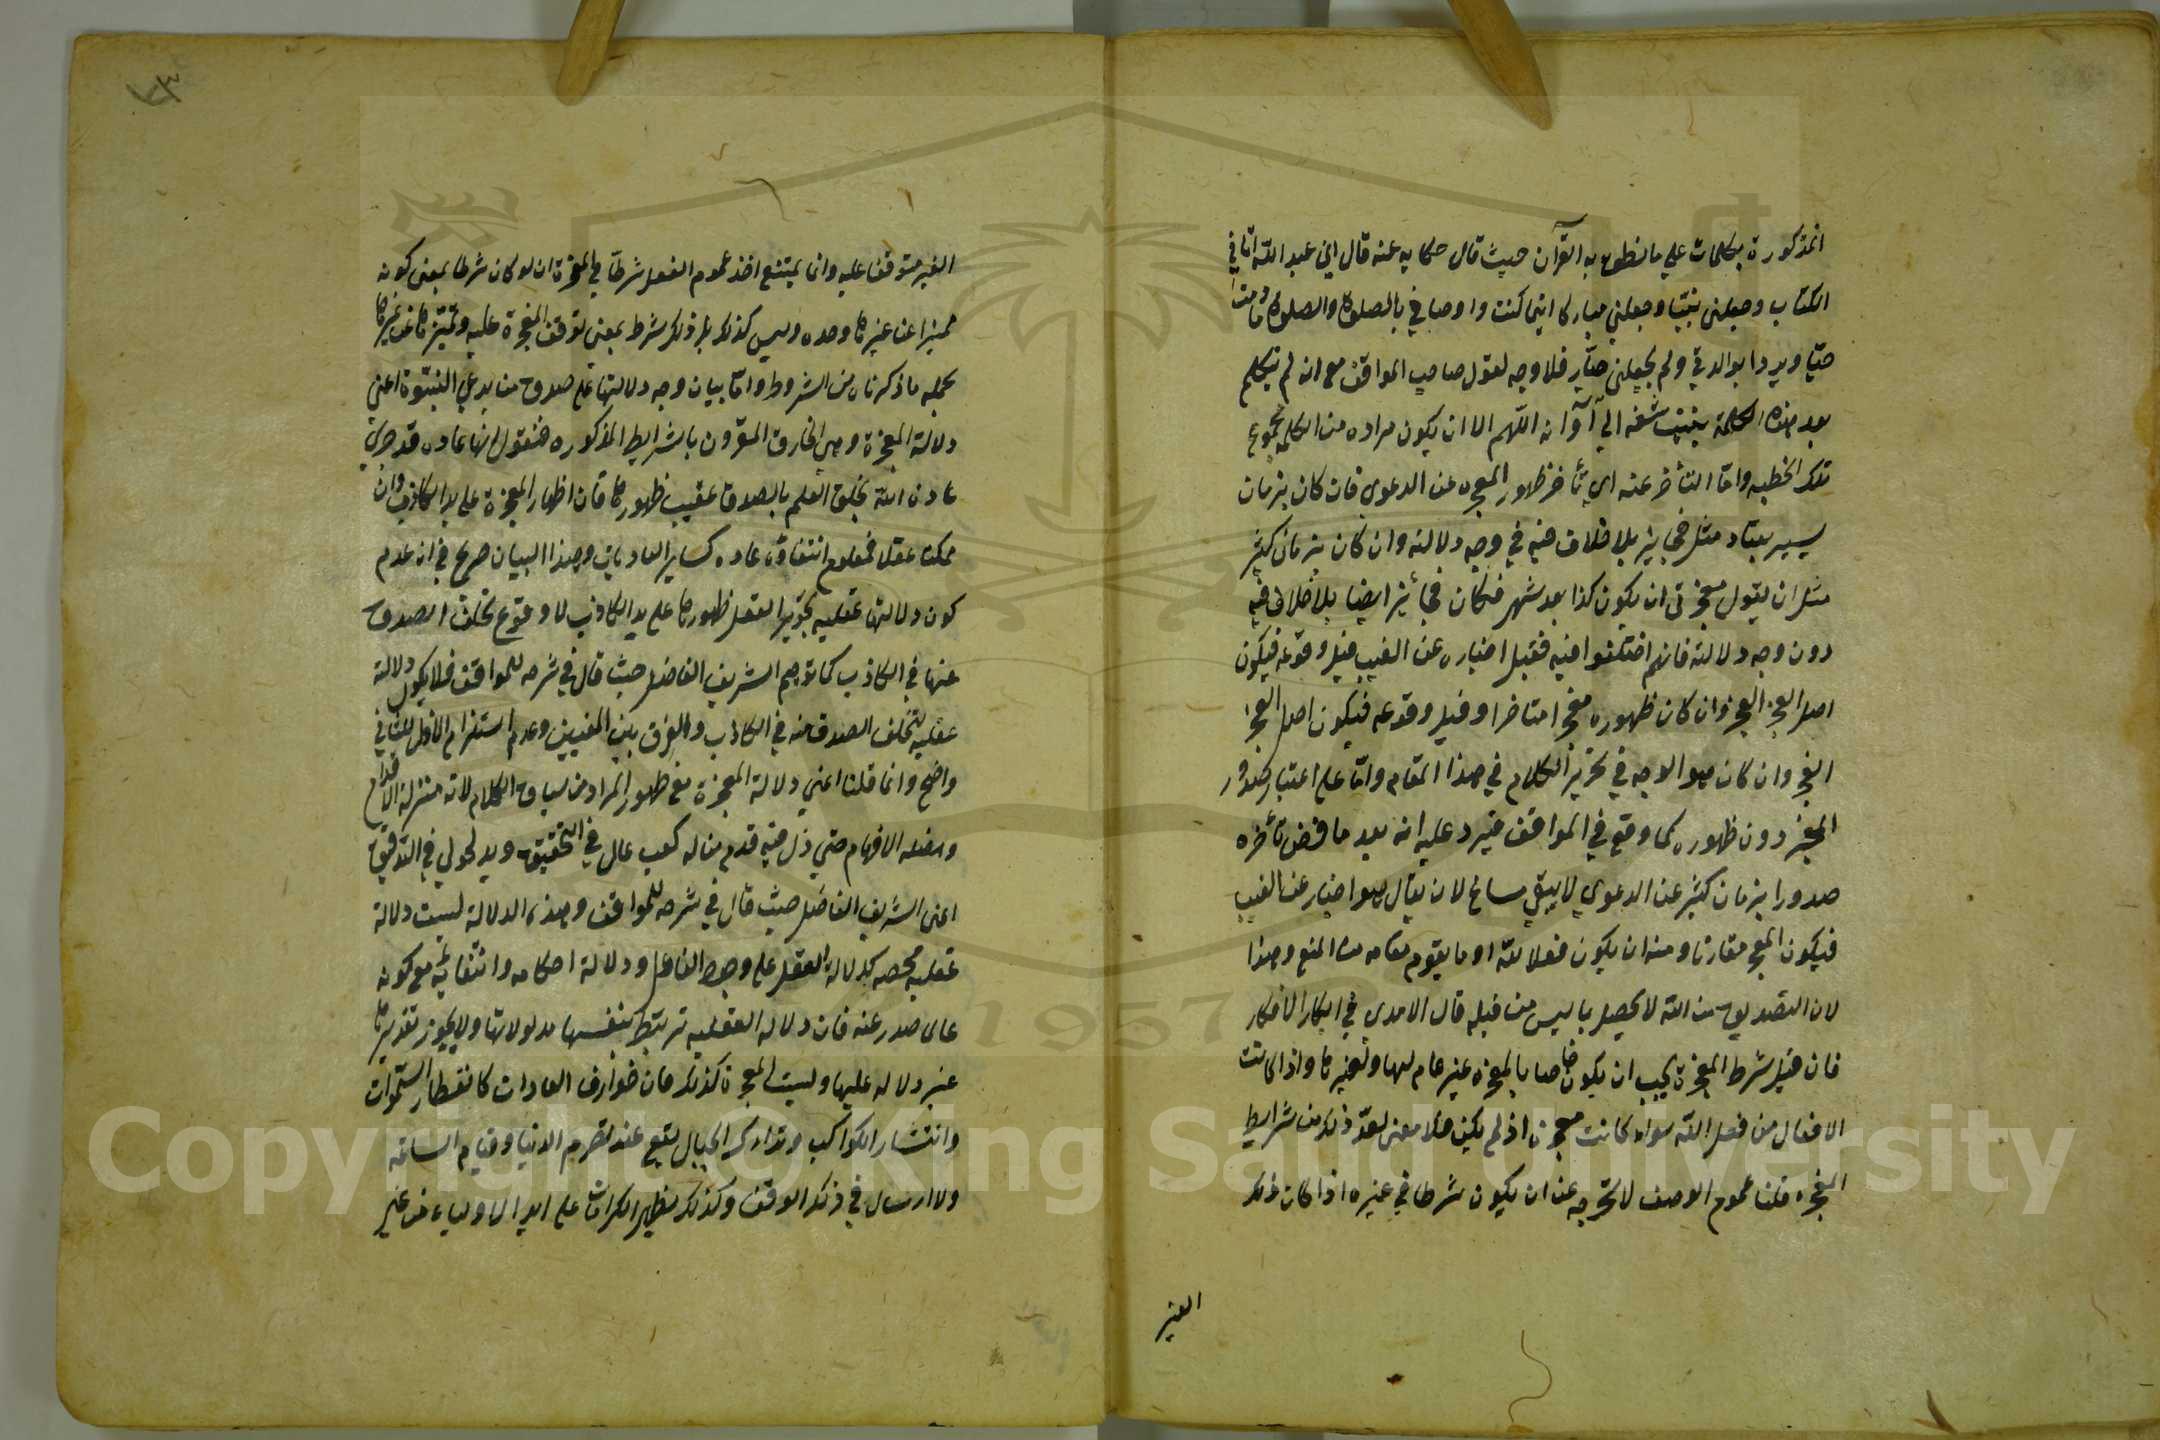 المذكورة بكلمات على ما نطق به القرآن حيث قال حكاية عنه قال اني عبد الله اتاني
الكتاب وجعلنى نبيّا وجعلني مباركا اينما كنت واوصاني بالصلوة والصلوة ما دمت
حيّا وبرا بوالدتي ولم يجعلنى جبّار فلا وجه لقول صاحب المواقف مع انه لم يتكلم
بعد هذه الكلمة ببنت شفه الى آوانه اللّهم الا ان يكون مراده من الكلمة مجموع
تلك الخطبه وامّا التأخر عنه اى تأخر ظهور المعجزه عن الدعوى فان كان بزمان
يسير يعتاد مثله فجايز بلا خلاف فيه في وجه دلالته وان كان بزمان كثير
مثل ان يقول معجزتى ان يكون كذا بعد شهر فكان فجائز ايضا بلا خلاف فيه
دون وجه دلالته فانهم اختلفوا فيه فقيل اخباره عن الغيب قبل وقوعه فيكون
اصل المعجز المعجز وان كان ظهوره معجزا متاخرا وقيل وقوعه فيكون اصل المعجز
المعجز وان كان هو الوجه في تحرير الكلام في هذا المقام وامّا على اعتبار صدور
المعجز دون ظهوره كما وقع في المواقف فيرد عليه انه بعد ما فرض تأخره
صدورا بزمان كثير عن الدعوى لا يبقى مساغ لان يقال هو اخبار عن الغيب
فيكون المعجز مقارنا ومنه ان يكون فعلا لله او ما يقوم مقامه من المنع وهذا
لان التصديق من الله لا يحصل بما ليس من قبله قال الامدى في ابكار الافكار
فان قيل شرط المعجزة يجب ان يكون خاصا بالمعجزه غير عام لها ولغيرها واذا كانت
الافعال من فعل الله سواء كانت معجزه اذ لم يكن فلا معنى لعدّ ذلك من شرايط
المعجزه قلنا عموم الوصف لا يخرجه عن ان يكون شرطا في غيره اذا كان ذلك
الغير
الغير متوقفا عليه وانما يمتنع اخذ عموم الفعل شرطا في المعجزة ان لو كان شرطا بمعنى كونه
مميزا عن غيرها وحده وليس كذلك بل ذلك شرط بمعنى توقف المعجزة عليه وتميّزها عن غيرها
بجملة ما ذكرناه من الشروط وامّا بيان وجه دلالتها على صدق من يدعي النبّوة اعنى
دلالة المعجزة وهي الخارق المقرون بالشرايط المذكوره فنقول انها عاده قد جرى
عادة الله بخلق العلم بالصدق عقيب ظهورها فان اظهار المعجزة على يد الكاذب وان
ممكنا عقلا فمعلوم انتفاؤه عاده كساير العاديات وهذا البيان صريح في ان عدم
كون دلالتها عقليه تجويز العقل ظهورها على يد الكاذب لا وقوع تخلف الصدق
عنها في الكاذب كما توهم الشريف الفاضل حيث قال في شرحه للمواقف فلا يكون دلالته
عقليه لتخلف الصدق منه في الكاذب والفرق بين المعنيين وعدم استلزام الاول للثاني
واضح وانما قلنا اعني دلالة المعجزة مع ظهور المراد من سياق الكلام لانه منزلة الاقدام
ومضلة الافهام حتى زل فيه قدم من له كعب عال في التحقيق ويد طولي في التدقيق
اعنى الشريف الفاضل حيث قال في شرحه للمواقف وهذه الدلالة ليست دلالة
عقليه محضه كدلالة الفعل على وجود الفاعل ودلالة احكامه واتقانه مع كونه
عالى صدر عنه فان دلاله العقليه ترتبط بنفسها مدلولاتها ولا يجوز تقديرها
غير دلاله عليها وليست المعجزة كذلك فان خوارق العادات كانفطار السّموات
وانتشار الكواكب وتدادك الجبال يقع عند تصرم الدنيا وقيام الساعة
ولا ارسال في ذلك الوقت وكذلك يظهر الكرامات على ايدى الاولياء من غير
Copyright © King Saud University
1957